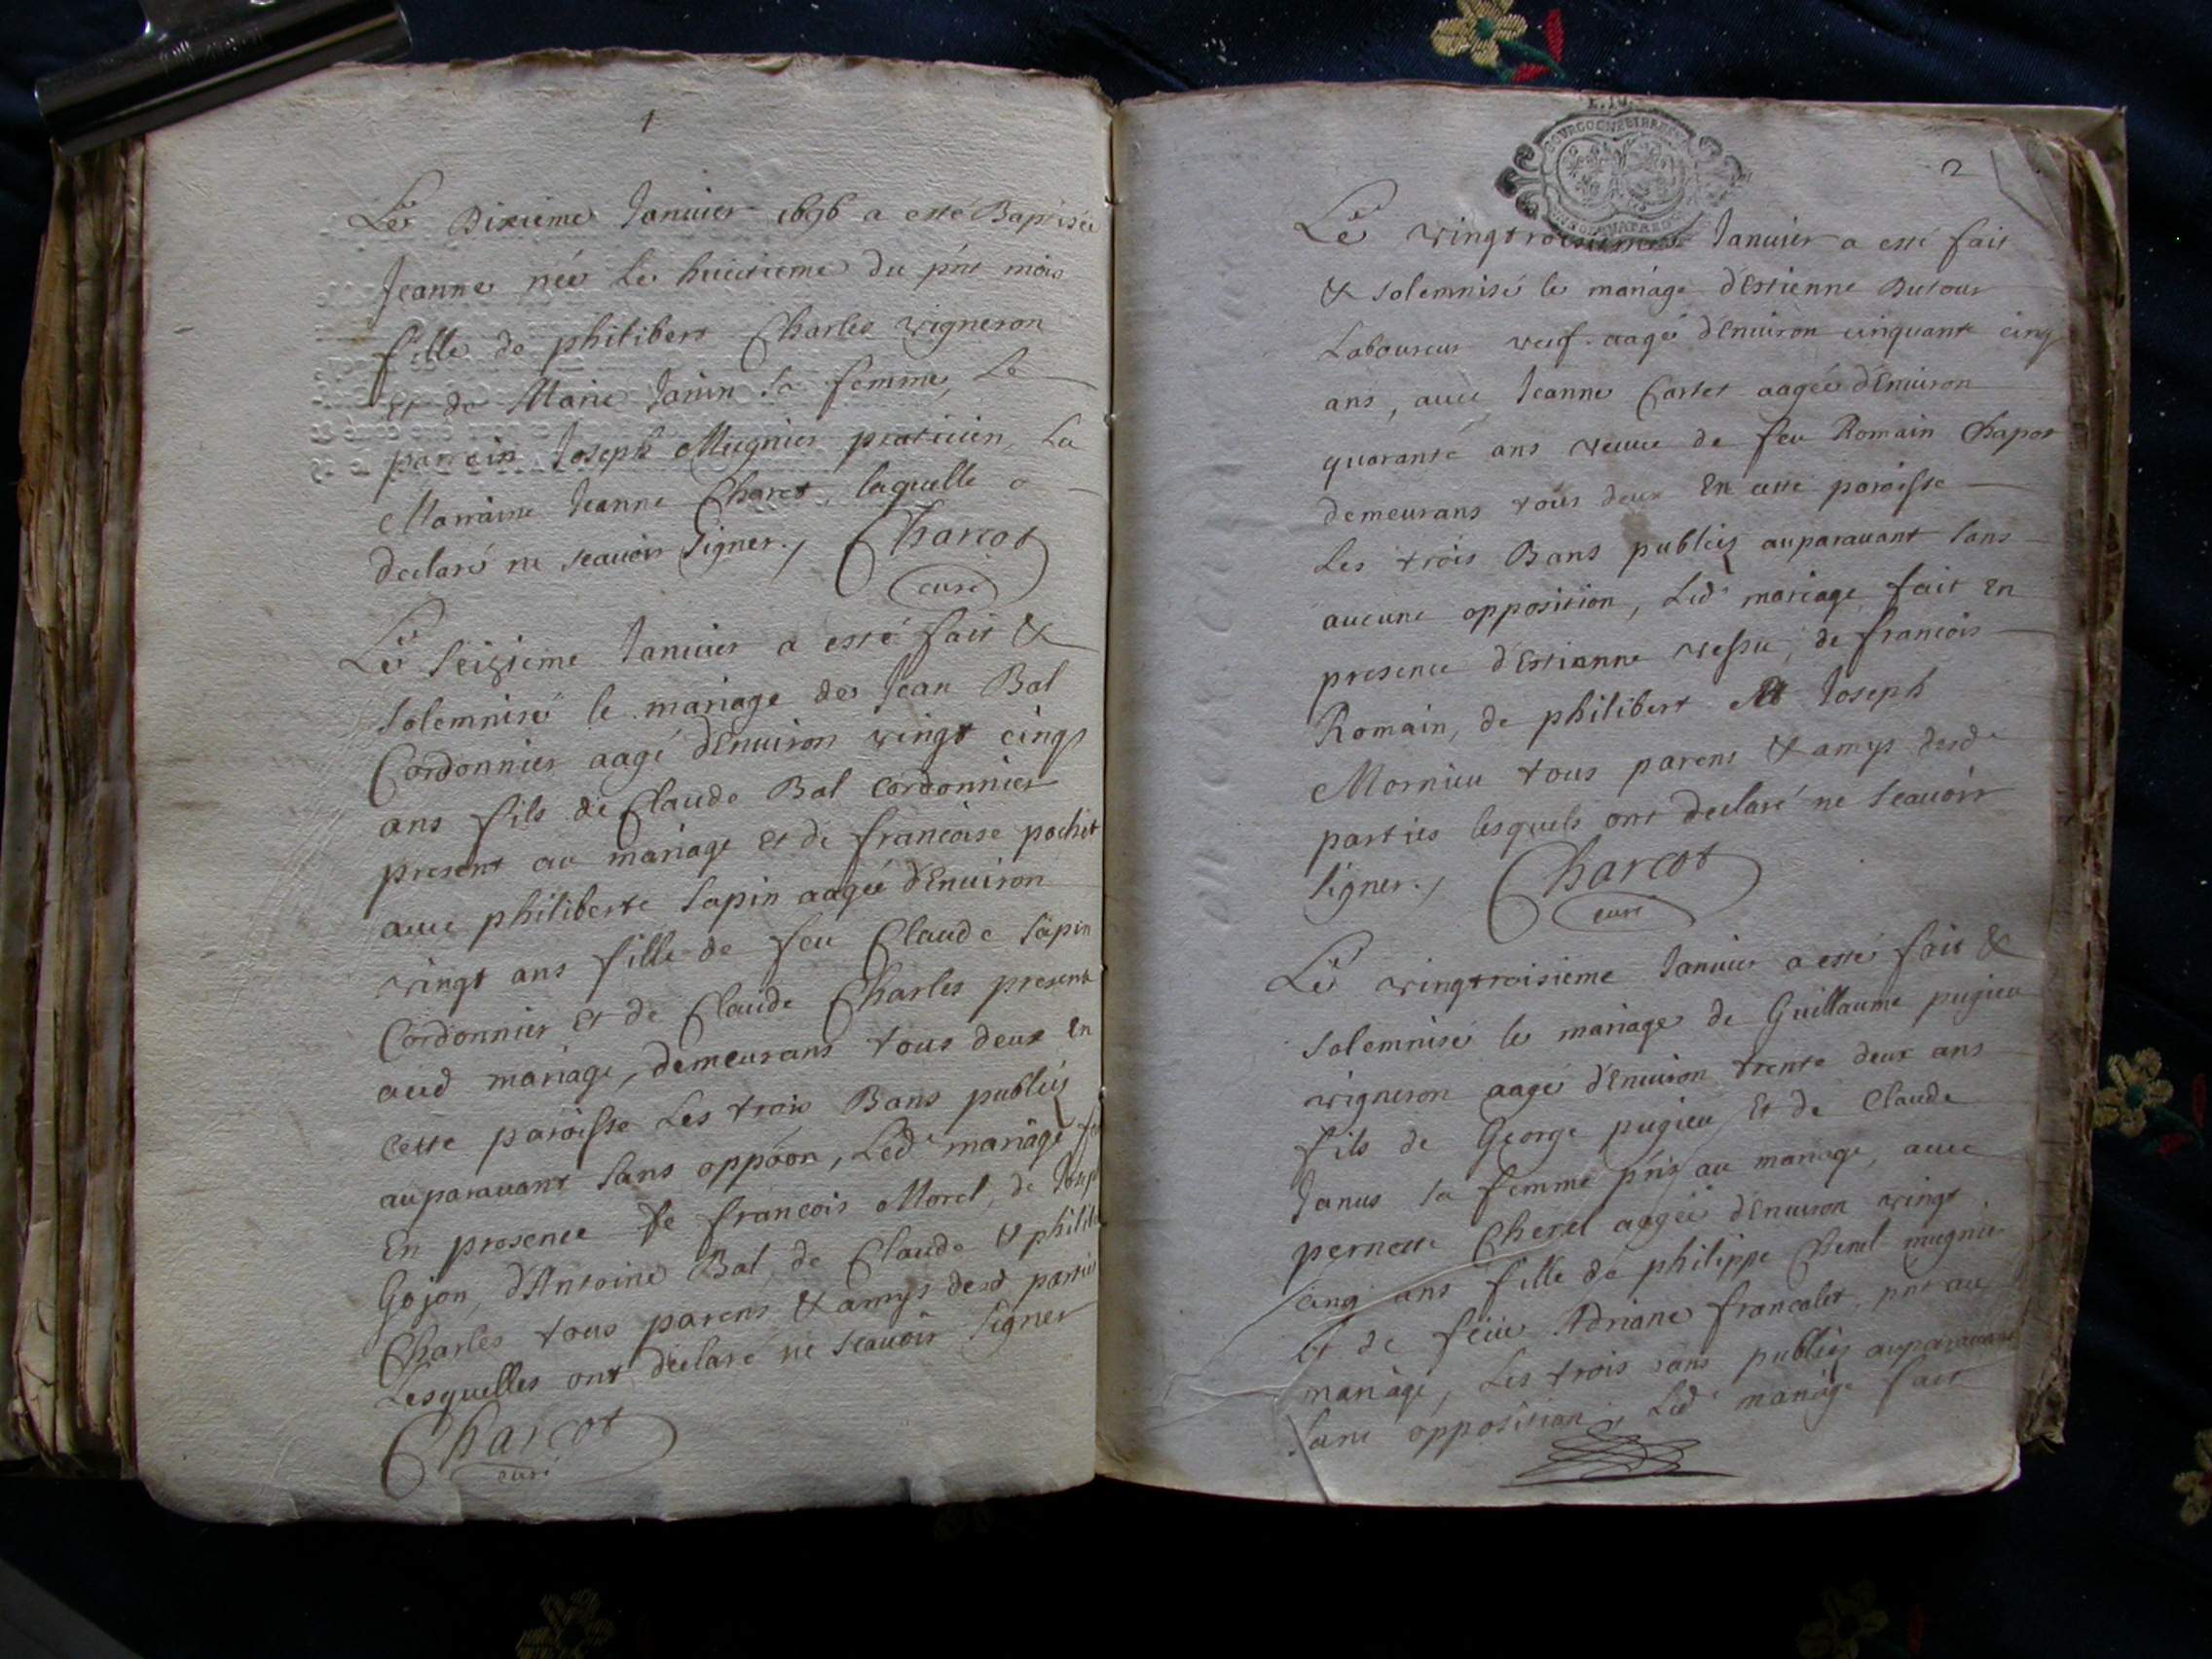 1
Le Dixieme Januier 1696 a esté Baptisée
Jeanne née le huictieme du pnt mois
fille de philibert Charles vigneron
et de Marie Janin sa femme, Le
parrein Joseph Mugnier praticien, La
Marraine Jeanne Charcot, laquelle a
declaré ne scauoir signer./ Charcot
curé
Le seizieme Januier a esté fait &
solemnisé le mariage de Jean Bal
Cordonnier aagé d'Enuiron vingt cinq
ans fils de Claude Bal cordonnier
present au mariage et de francoise pochet
auec philiberte Sapin aagée d'Enuiron
vingt ans fille de feu Claude Sapin
Cordonnier et de Claude Charles presente
aud mariage, demeurans tous deux En
cette paroisse Les trois Bans publiés
auparauant sans oppoon, Led mariage
En presence de francois Morel, de
Gojon, d'Antoine Bal, de Claude &
Charles tous parens & amys desd parties
Lesquelles ont declaré ne scauoir signer
Charcot
curé
2
Le vingtroisieme Januier a esté fait
& solemnisé le mariage d'Estienne Dutour
Laboureur veuf aagé d'Enuiron cinquante cinq
ans, auec Jeanne Cartet aagée d'Enuiron
quarante ans veuue de feu Romain Chapot
demeurans tous deux En cette paroisse
Les trois Bans publiés auparauant sans
aucune opposition, Led mariage fait En
presence d'Estienne vessu, de francois
Romain, de philibert & Joseph
Mornieu tous parens & amys desd
parties lesquels ont declaré ne scauoir
signer./ Charcot
curé
Le vingtroisieme Januier a esté fait &
solemnisé le mariage de Guillaume pugieu
vigneron aagé d'Enuiron trente deux ans
fils de George pugieu Et de Claude
Janus sa femme pns au mariage, auec
pernette Cherel aagée d'Enuiron vingt
cinq ans fille de philippe Cherel mugnier
Et de feüe Adriane francalet, pnt au
mariage, Les trois bans publiés auparauant
sans opposition, Led mariage fait